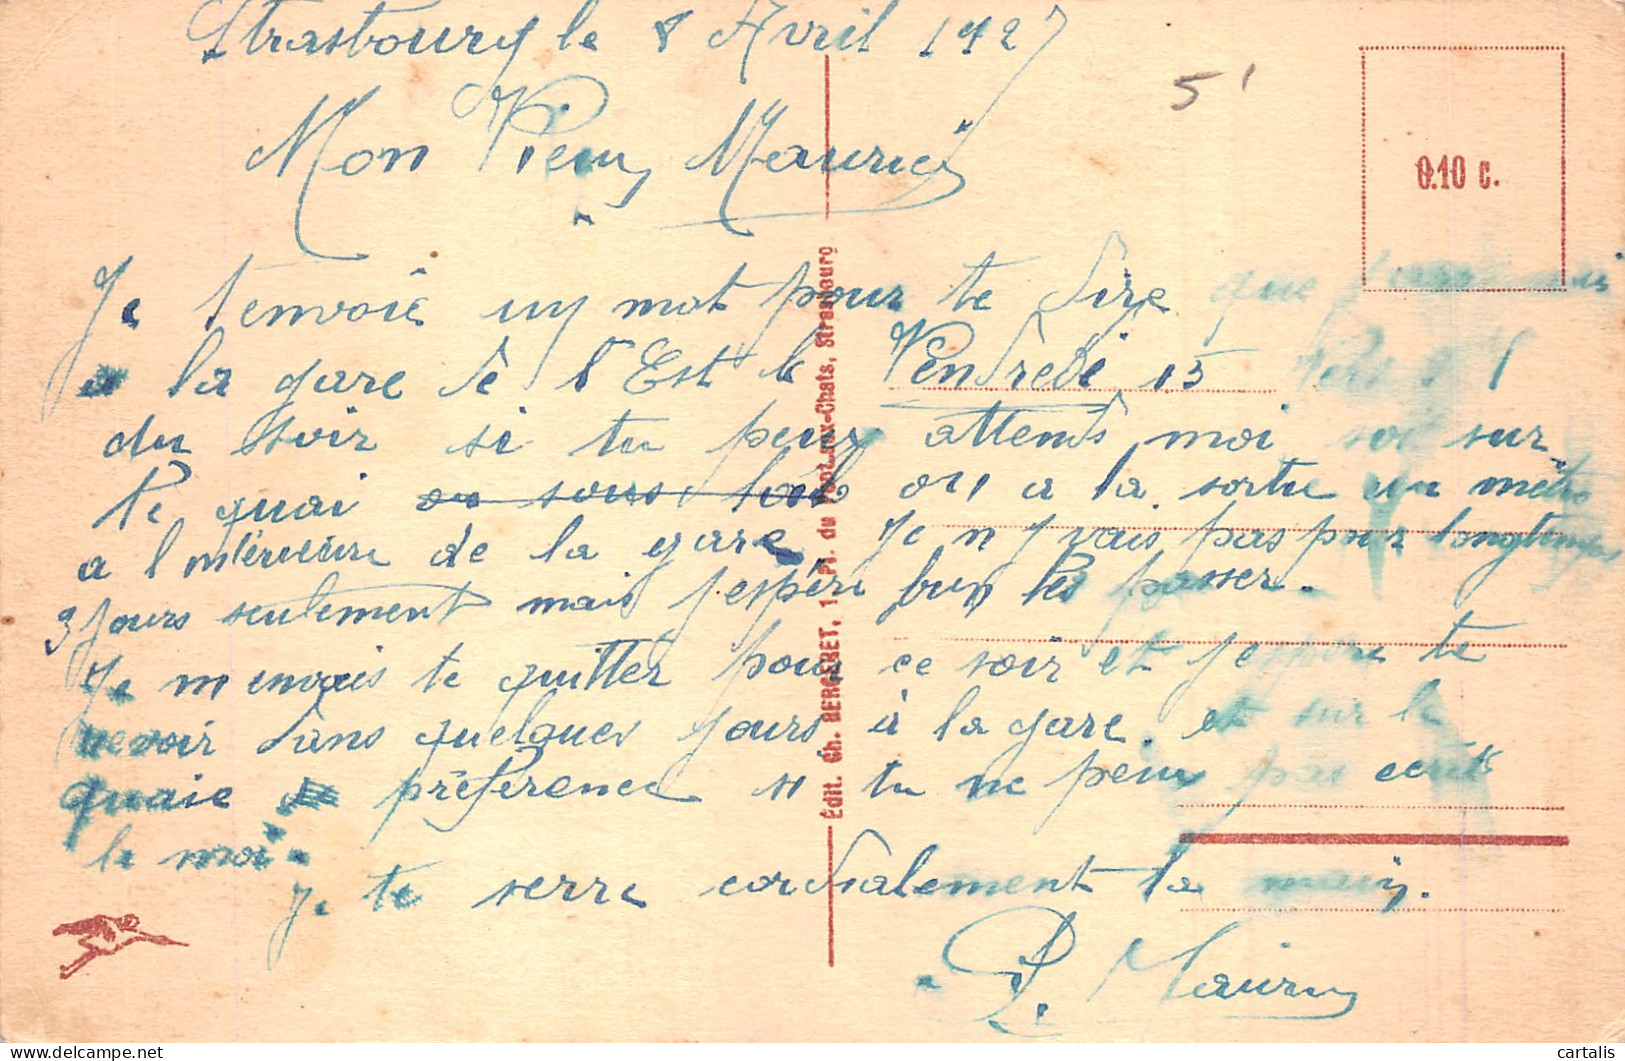 Strasbourg le 8 Avril 1927
5'
Mon Vieux Maurice
0.10 c.
Je t'envoie un mot pour te dire que
a la gare de l'Est le Vendredi 15 vers
du soir si tu peux attends moi soit sur
le quai ou sous hall ou a la sortie du métro
a l'interieure de la gare Je n'y vais pas pour longtemps
3 jours seulement mais j'espère bien les passer.
Je m'envais te quitter pour ce soir et j'espère te
revoir dans quelques jours à la gare et sur le
quaie de préférence si tu ne peux pas ecrits
le moi.
Je te serre cordialement la main.
P. Maury
Édit. Ch. BERGERET, 1, Pl. du Pont-aux-Chats, Strasbourg
cartalis